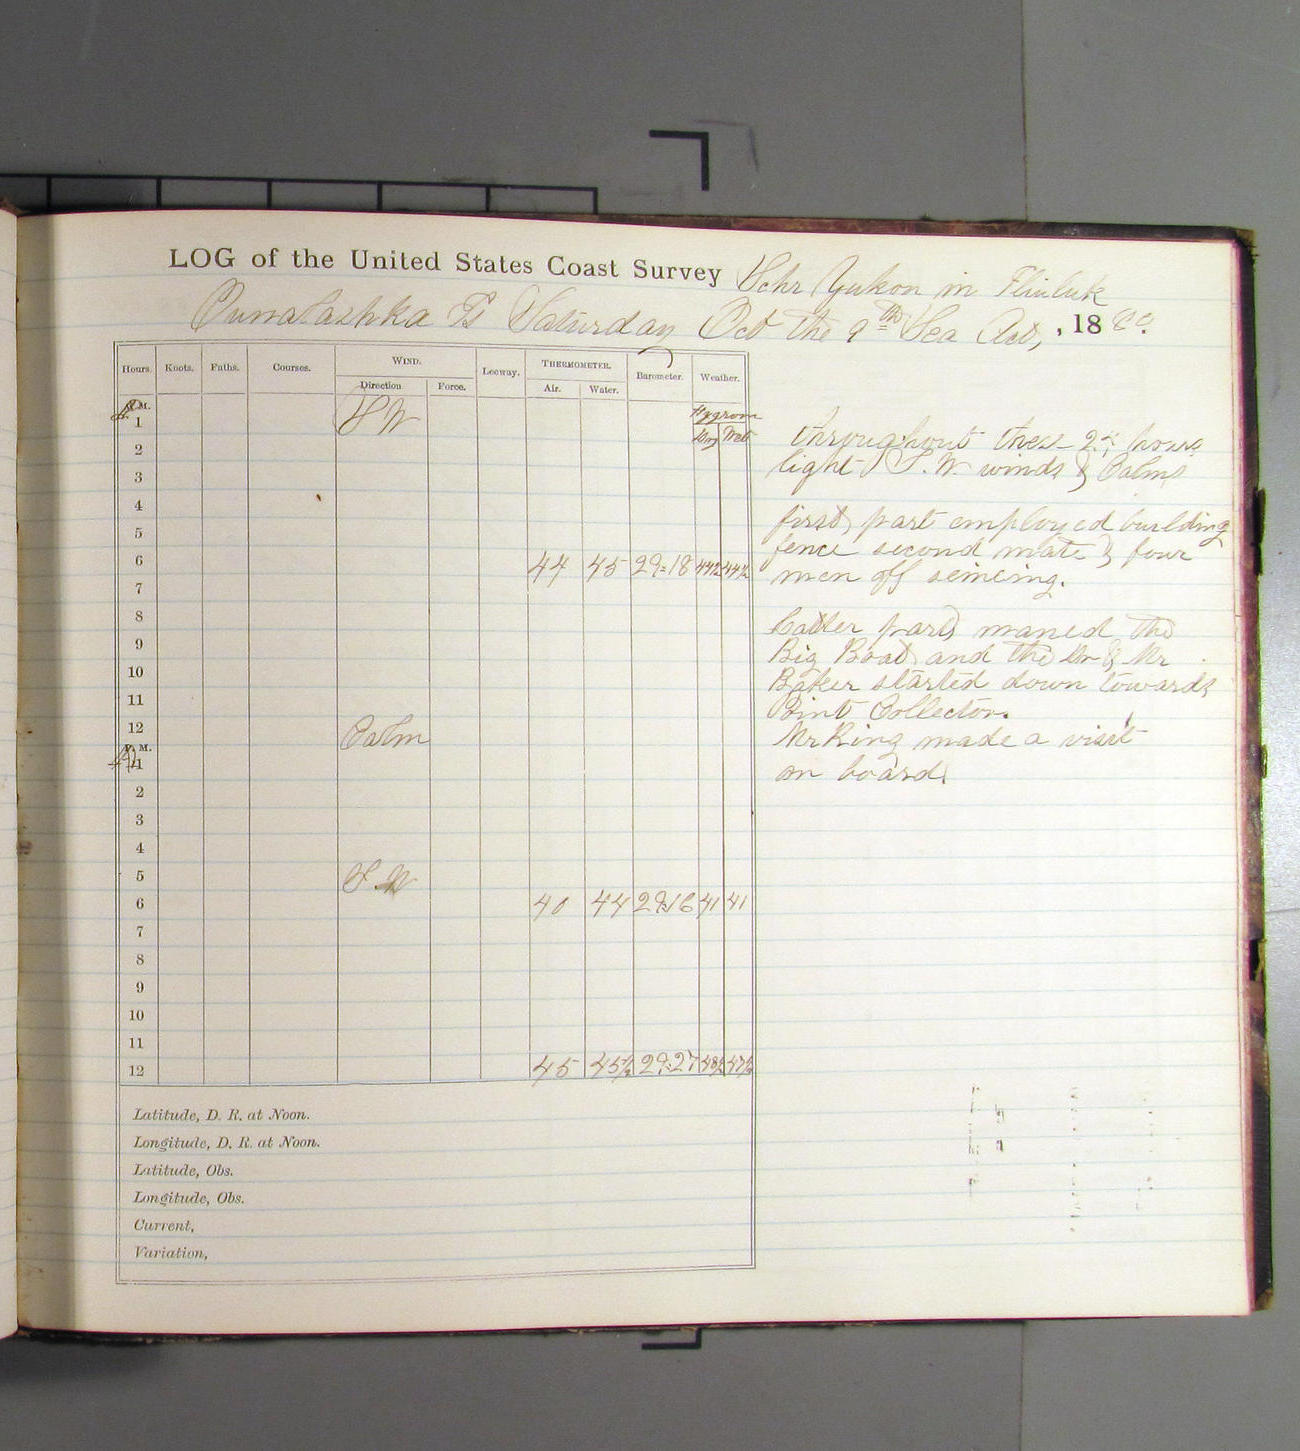 LOG of the United States Coast Survey Schr Yukon in Iliuluk
Ounalashka Is Saturday Oct the 9th Sea Act, , 18 80.
Hours. Knots. Faths. Courses. WIND. Leeway. THERMOMETER. Barometer. Weather.
Direction. Force. Air. Water.
M.
1 S W Hygrom
2 Dry Wet
3
4
5
6 44 45 29.18 44½ 44½
7
8
9
10
11
12 Calm
M.
1
2
3
4
5 S. W
6 40 44 29.16 41 41
7
8
9
10
11
12 45 45½ 29.27
Latitude, D. R. at Noon.
Longitude, D. R. at Noon.
Latitude, Obs.
Longitude, Obs.
Current,
Variation,
throughout these 24 hours
light S. W. winds & Calms
first part employed building
fence second mate & four
men off seineing.
Latter part maned the
Big Boat and the Dr & Mr
Baker started down towards
Point Collector.
Mr King made a visit
on board.